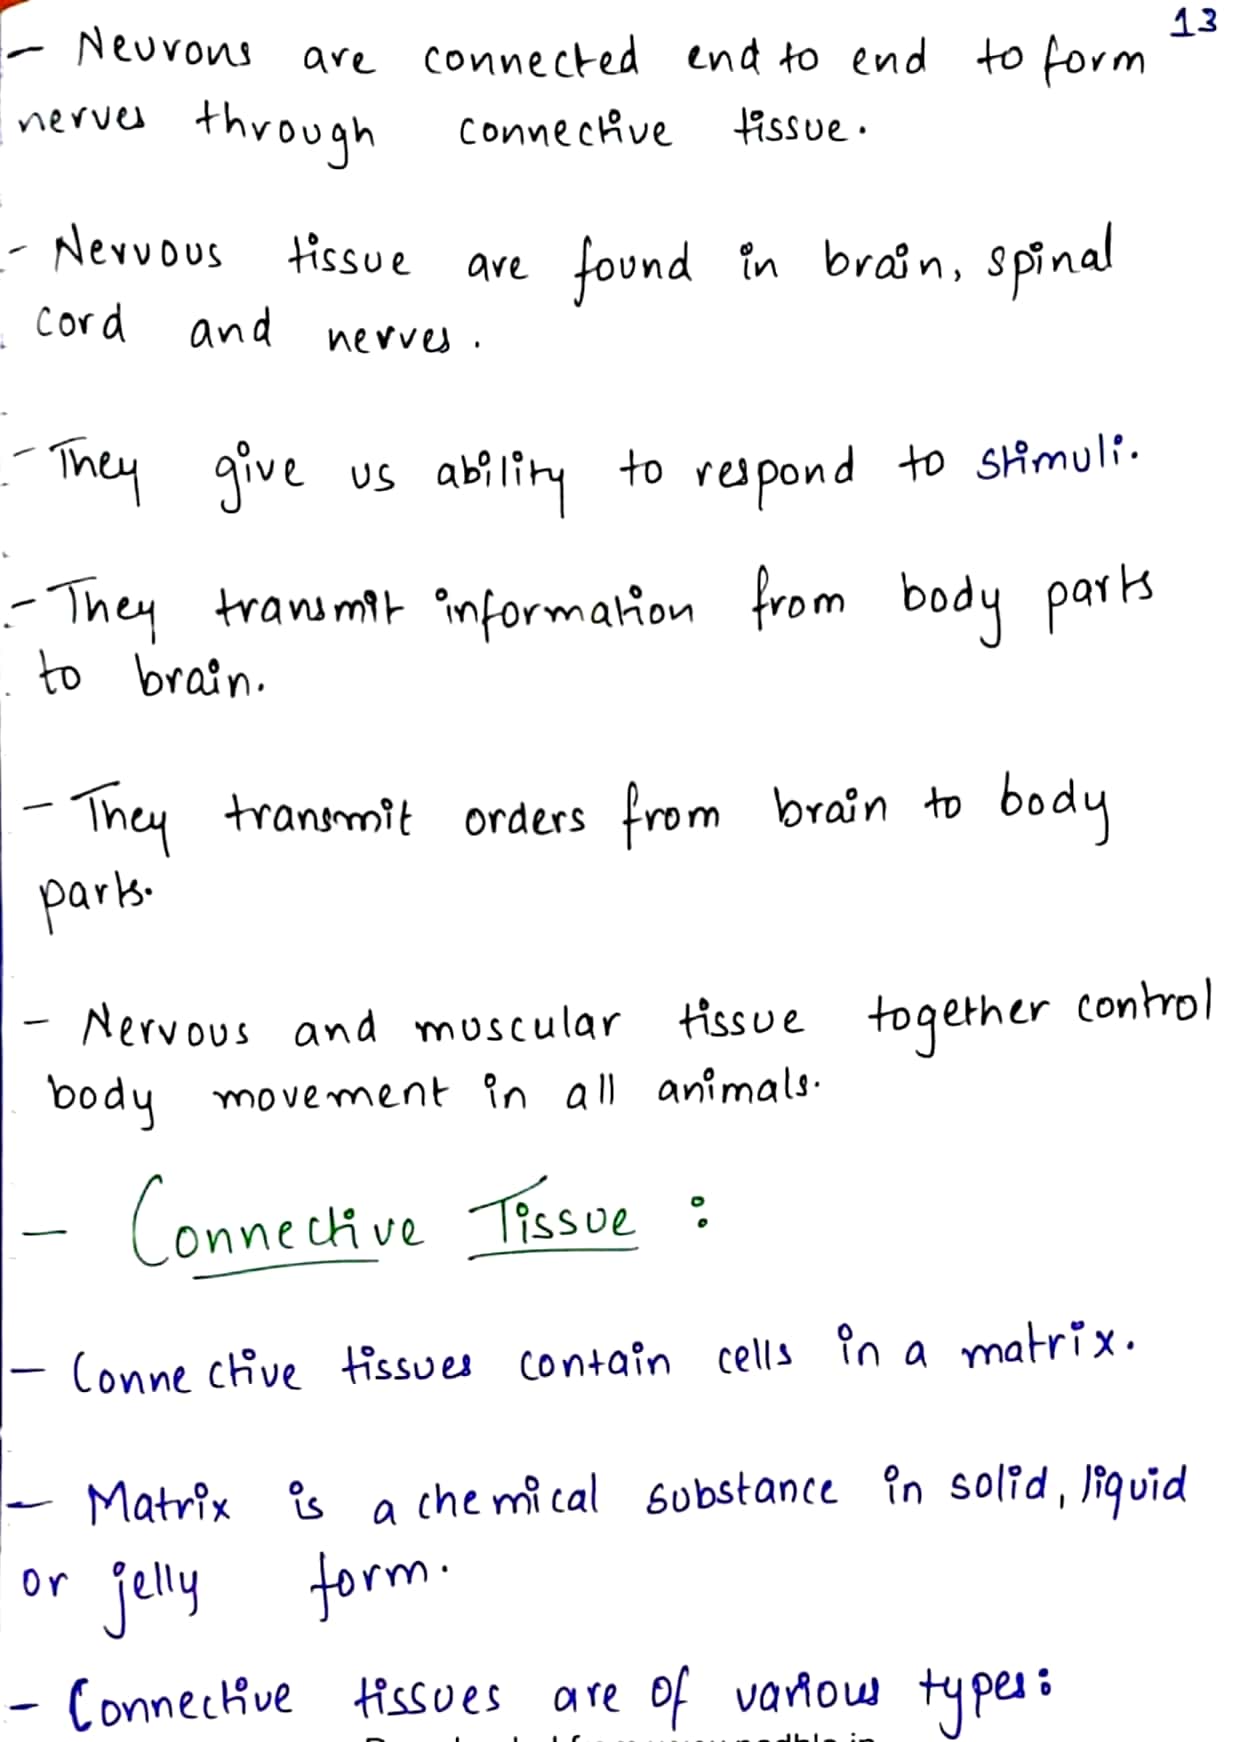 13
- Neurons are connected end to end to form
nerves through connective tissue.
- Nervous tissue are found in brain, spinal
cord and nerves.
- They give us ability to respond to stimuli.
- They transmit information from body parts
to brain.
- They transmit orders from brain to body
parts.
- Nervous and muscular tissue together control
body movement in all animals.
- Connective Tissue :
- Connective tissues contain cells in a matrix.
- Matrix is a chemical substance in solid, liquid
or jelly form.
- Connective tissues are of various types: